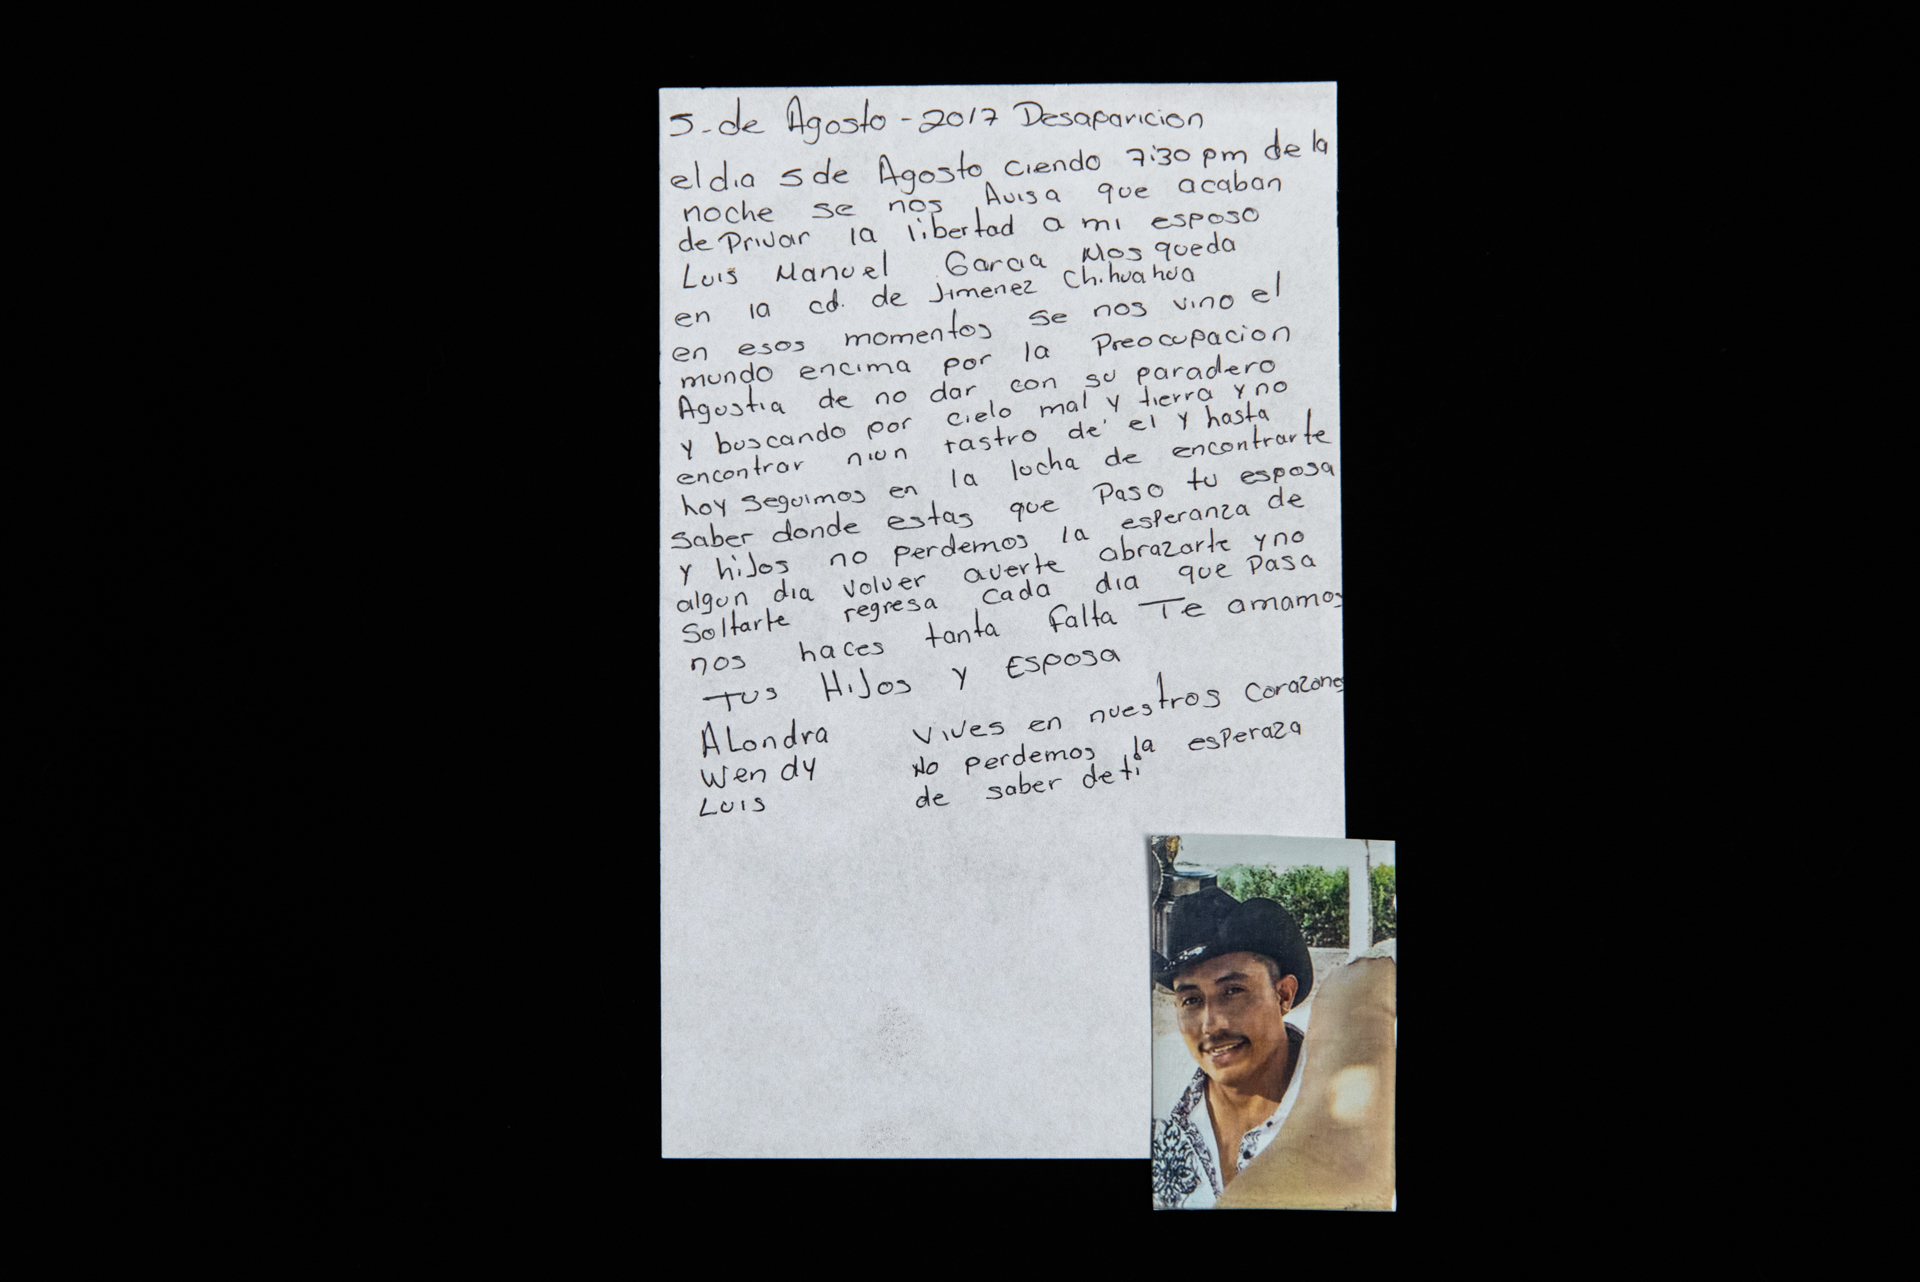 5-de Agosto-2017 Desaparicion
el dia 5 de Agosto ciendo 7:30 pm de la
noche se nos Avisa que acaban
de Privar la libertad a mi esposo
Luis Manuel Garcia Mosqueda
en la cd. de Jimenez Chihuahua
en esos momentos se nos vino el
mundo encima por la Preocupacion
Agustia de no dar con su paradero
y buscando por cielo mal y tierra y no
encontrar niun rastro de el y hasta
hoy seguimos en la lucha de encontrarte
saber donde estas que Paso tu esposa
y hijos no perdemos la esperanza de
algun dia volver averte abrazarte y no
Soltarte regresa cada dia que Pasa
nos haces tanta falta Te amamos
Tus Hijos y Esposa
ALondra Vives en nuestros corazones
Wendy No perdemos la esperaza
Luis de saber de ti